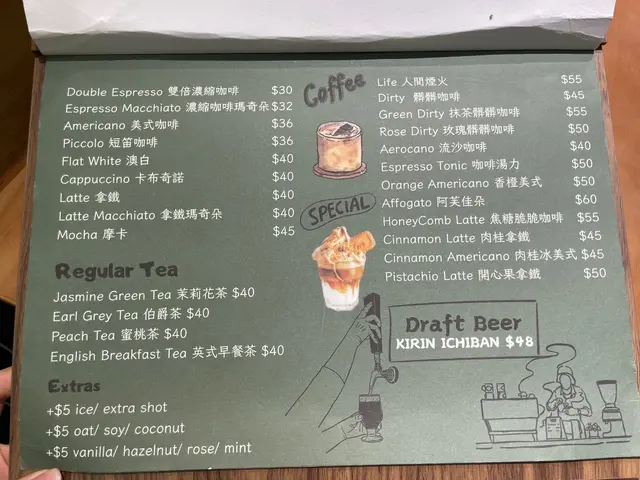 Coffee
Double Espresso 雙倍濃縮咖啡 $30
Espresso Macchiato 濃縮咖啡瑪奇朵 $32
Americano 美式咖啡 $36
Piccolo 短笛咖啡 $36
Flat White 澳白 $40
Cappuccino 卡布奇諾 $40
Latte 拿鐵 $40
Latte Macchiato 拿鐵瑪奇朵 $40
Mocha 摩卡 $45
Regular Tea
Jasmine Green Tea 茉莉花茶 $40
Earl Grey Tea 伯爵茶 $40
Peach Tea 蜜桃茶 $40
English Breakfast Tea 英式早餐茶 $40
Extras
+$5 ice/ extra shot
+$5 oat/ soy/ coconut
+$5 vanilla/ hazelnut/ rose/ mint
SPECIAL
Life 人間煙火 $55
Dirty 髒髒咖啡 $45
Green Dirty 抹茶髒髒咖啡 $55
Rose Dirty 玫瑰髒髒咖啡 $50
Aerocano 流沙咖啡 $40
Espresso Tonic 咖啡湯力 $50
Orange Americano 香橙美式 $50
Affogato 阿芙佳朵 $60
HoneyComb Latte 焦糖脆脆咖啡 $55
Cinnamon Latte 肉桂拿鐵 $45
Cinnamon Americano 肉桂冰美式 $45
Pistachio Latte 開心果拿鐵 $50
Draft Beer
KIRIN ICHIBAN $48